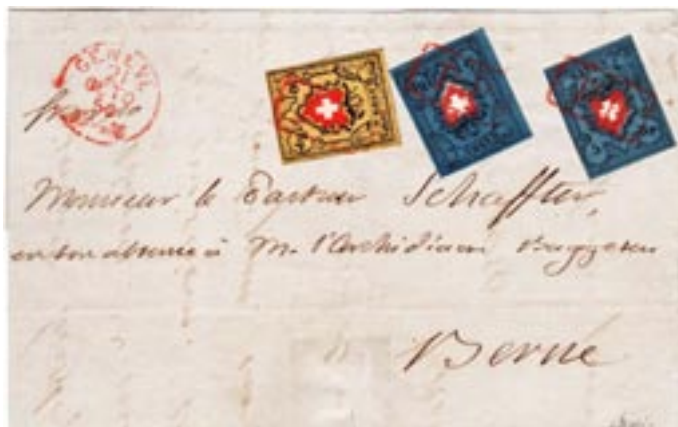 GENÈVE
franco
Monsieur le Pasteur Schaffter,
en son absence à M. l'Archidiacre Baggesen
Berne